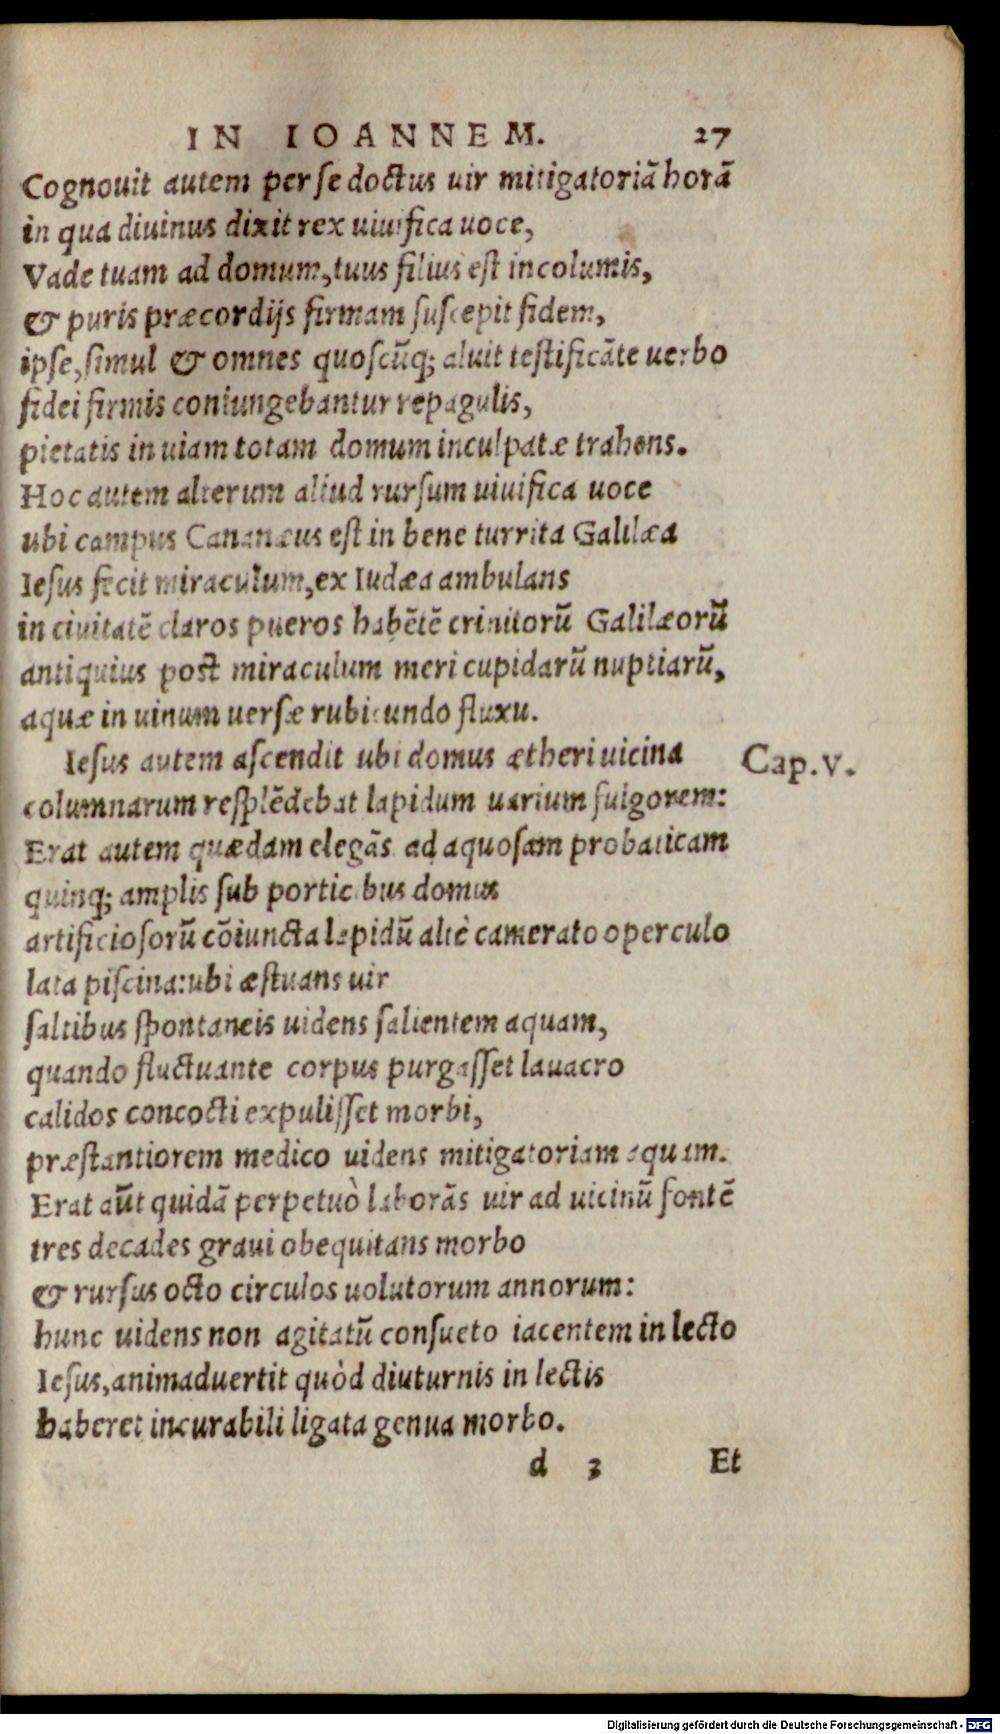 IN IOANNEM. 27
Cognouit autem per se doctus uir mitigatoriã horã
in qua diuinus dixit rex uiuifica uoce,
Vade tuam ad domum, tuus filius est incolumis,
& puris præcordijs firmam suscepit fidem,
ipse, simul & omnes quoscũq; aluit testificãte uerbo
fidei firmis coniungebantur repagulis,
pietatis in uiam totam domum inculpatæ trahens.
Hoc autem alterum aliud rursum uiuifica uoce
ubi campus Cananæus est in bene turrita Galilæa
Iesus fecit miraculum, ex Iudæa ambulans
in ciuitatẽ claros pueros habẽtẽ crinitorũ Galilæorũ
antiquius post miraculum meri cupidarũ nuptiarũ,
aquæ in uinum uersæ rubicundo fluxu.
Iesus autem ascendit ubi domus ætheri uicina Cap. V.
columnarum resplẽdebat lapidum uarium fulgorem:
Erat autem quædam elegãs ad aquosam probaticam
quinq; amplis sub porticibus domus
artificiosorũ cõiuncta lapidũ altè camerato operculo
lata piscina: ubi æstuans uir
saltibus spontaneis uidens salientem aquam,
quando fluctuante corpus purgasset lauacro
calidos concocti expulisset morbi,
præstantiorem medico uidens mitigatoriam aquam.
Erat aũt quidã perpetuò laborãs uir ad uicinũ fontẽ
tres decades graui obequitans morbo
& rursus octo circulos uolutorum annorum:
hunc uidens non agitatũ consueto iacentem in lecto
Iesus, animaduertit quòd diuturnis in lectis
haberet incurabili ligata genua morbo.
d 3 Et
Digitalisierung gefördert durch die Deutsche Forschungsgemeinschaft - DFG